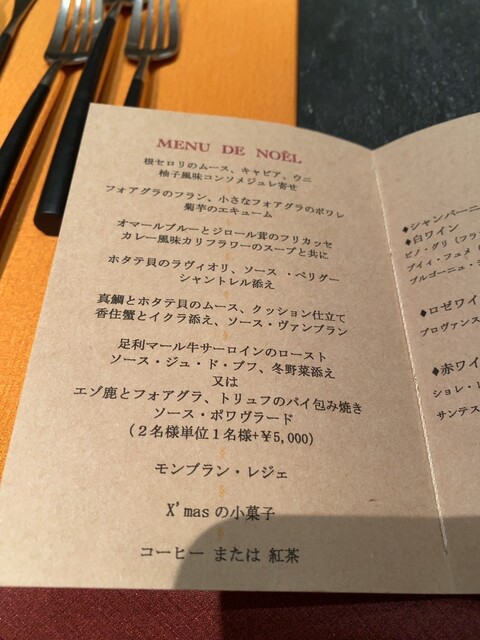 MENU DE NOËL
根セロリのムース、キャビア、ウニ
柚子風味コンソメジュレ寄せ
フォアグラのフラン、小さなフォアグラのポワレ
菊芋のエキューム
オマールブルーとジロール茸のフリカッセ
カレー風味カリフラワーのスープと共に
ホタテ貝のラヴィオリ、ソース・ペリグー
シャントレル添え
真鯛とホタテ貝のムース、クッション仕立て
香住蟹とイクラ添え、ソース・ヴァンブラン
足利マール牛サーロインのロースト
ソース・ジュ・ド・ブフ、冬野菜添え
又は
エゾ鹿とフォアグラ、トリュフのパイ包み焼き
ソース・ポワヴラード
(２名様単位１名様+￥5,000)
モンブラン・レジェ
X'masの小菓子
コーヒー または 紅茶
◆シャンパーニ
◆白ワイン
ピノ・グリ (フラン
プイィ・フュメ (
ブルゴーニュ・
◆ロゼワイ
プロヴァンス
◆赤ワイ
ショレ・
サンテス